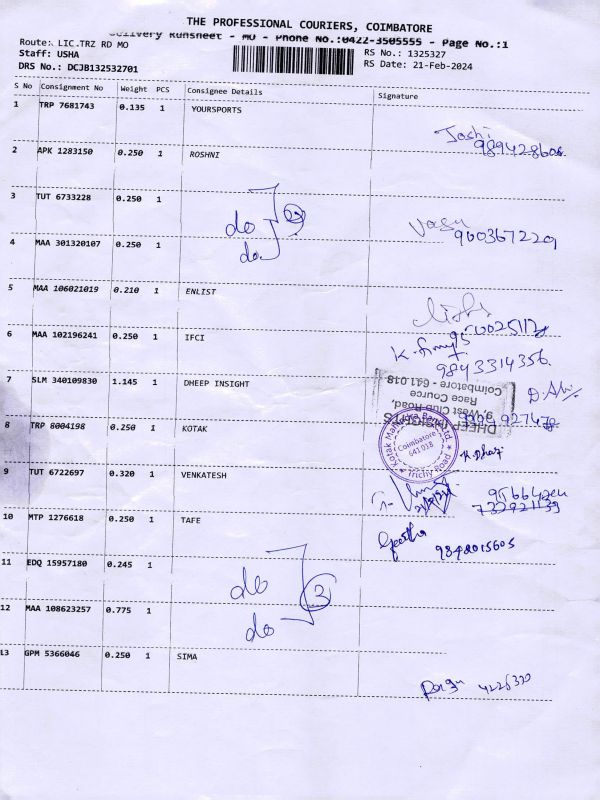 THE PROFESSIONAL COURIERS, COIMBATORE
Delivery Runsheet - MO - Phone No.:0422-3505555 - Page No.:1
Route: LIC.TRZ RD MO
Staff: USHA
DRS No.: DCJB132532701
RS No.: 1325327
RS Date: 21-Feb-2024
S No Consignment No Weight PCS Consignee Details Signature
1 TRP 7681743 0.135 1 YOURSPORTS
2 APK 1283150 0.250 1 ROSHNI
3 TUT 6733228 0.250 1 do
4 MAA 301320107 0.250 1 do
5 MAA 106021019 0.210 1 ENLIST
6 MAA 102196241 0.250 1 IFCI
9843314356
7 SLM 340109830 1.145 1 DHEEP INSIGHT
DHEEP INSIGHTS
9, West Club Road,
Race Cource
Coimbatore - 641.018
8 TRP 8004198 0.250 1 KOTAK
Kotak Mahindra Bank Ltd
Coimbatore
641 018
Trichy Road
9 TUT 6722697 0.320 1 VENKATESH
10 MTP 1276618 0.250 1 TAFE
Geetha
11 EDQ 15957180 0.245 1 do
12 MAA 108623257 0.775 1 do
13 GPM 5366046 0.250 1 SIMA